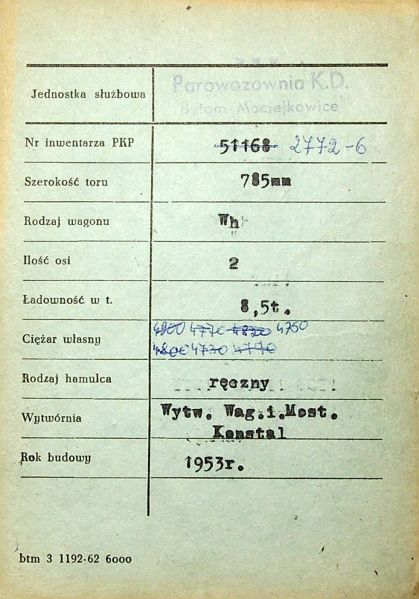 Jednostka służbowa Parowozownia K.D.
Bytom Maciejkowice
Nr inwentarza PKP 51168 2772-6
Szerokość toru 785mm
Rodzaj wagonu Wh
Ilość osi 2
Ładowność w t. 8,5t.
Ciężar własny 4900 4770 4820 4750
4800 4730 4770
Rodzaj hamulca ręczny
Wytwórnia Wytw. Wag.i.Most.
Konstal
Rok budowy 1953r.
btm 3 1192-62 6000